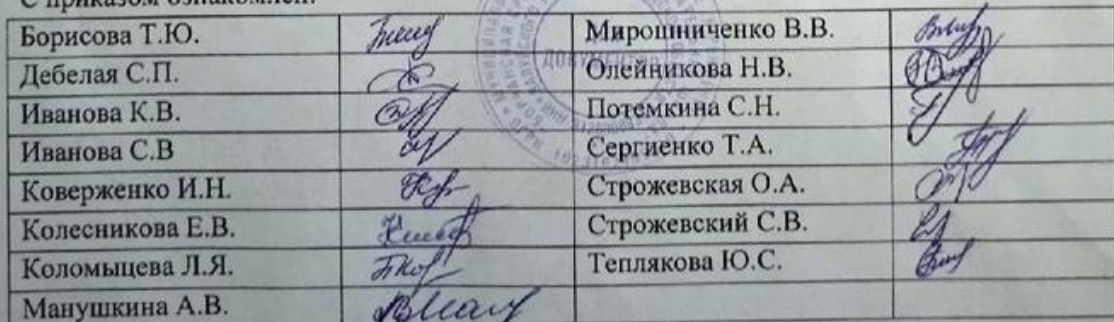 С приказом ознакомлен:
Борисова Т.Ю. Мирошниченко В.В.
Дебелая С.П. Олейникова Н.В.
Иванова К.В. Потемкина С.Н.
Иванова С.В Сергиенко Т.А.
Коверженко И.Н. Строжевская О.А.
Колесникова Е.В. Строжевский С.В.
Коломыцева Л.Я. Теплякова Ю.С.
Манушкина А.В.